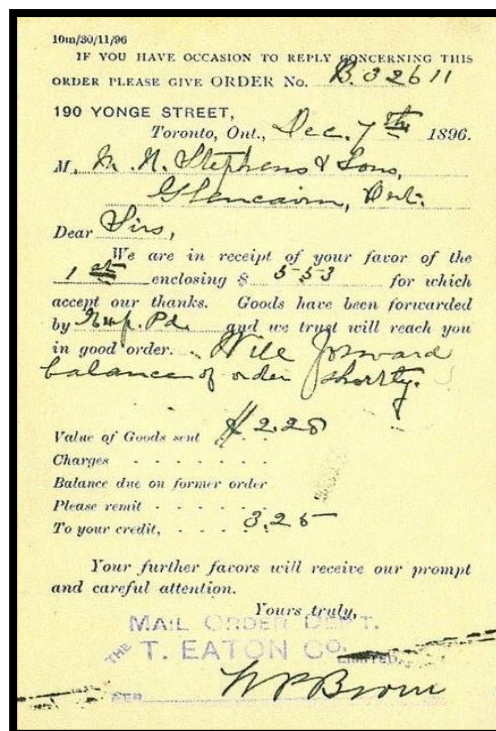 10m/30/11/96
IF YOU HAVE OCCASION TO REPLY CONCERNING THIS
ORDER PLEASE GIVE ORDER No. B.32611
190 YONGE STREET,
Toronto, Ont., Dec. 7th 1896.
M. Stephens & Sons,
Glencairn, Ont.
Dear Sirs,
We are in receipt of your favor of the
1st enclosing $ 5 53 for which
accept our thanks. Goods have been forwarded
by Exp. Pd. and we trust will reach you
in good order. Will forward
balance of order shortly.
Value of Goods sent $2.28
Charges
Balance due on former order
Please remit
To your credit, 3.25
Your further favors will receive our prompt
and careful attention.
Yours truly,
MAIL ORDER DEPT.
THE T. EATON CO. LIMITED
PER W P Brown